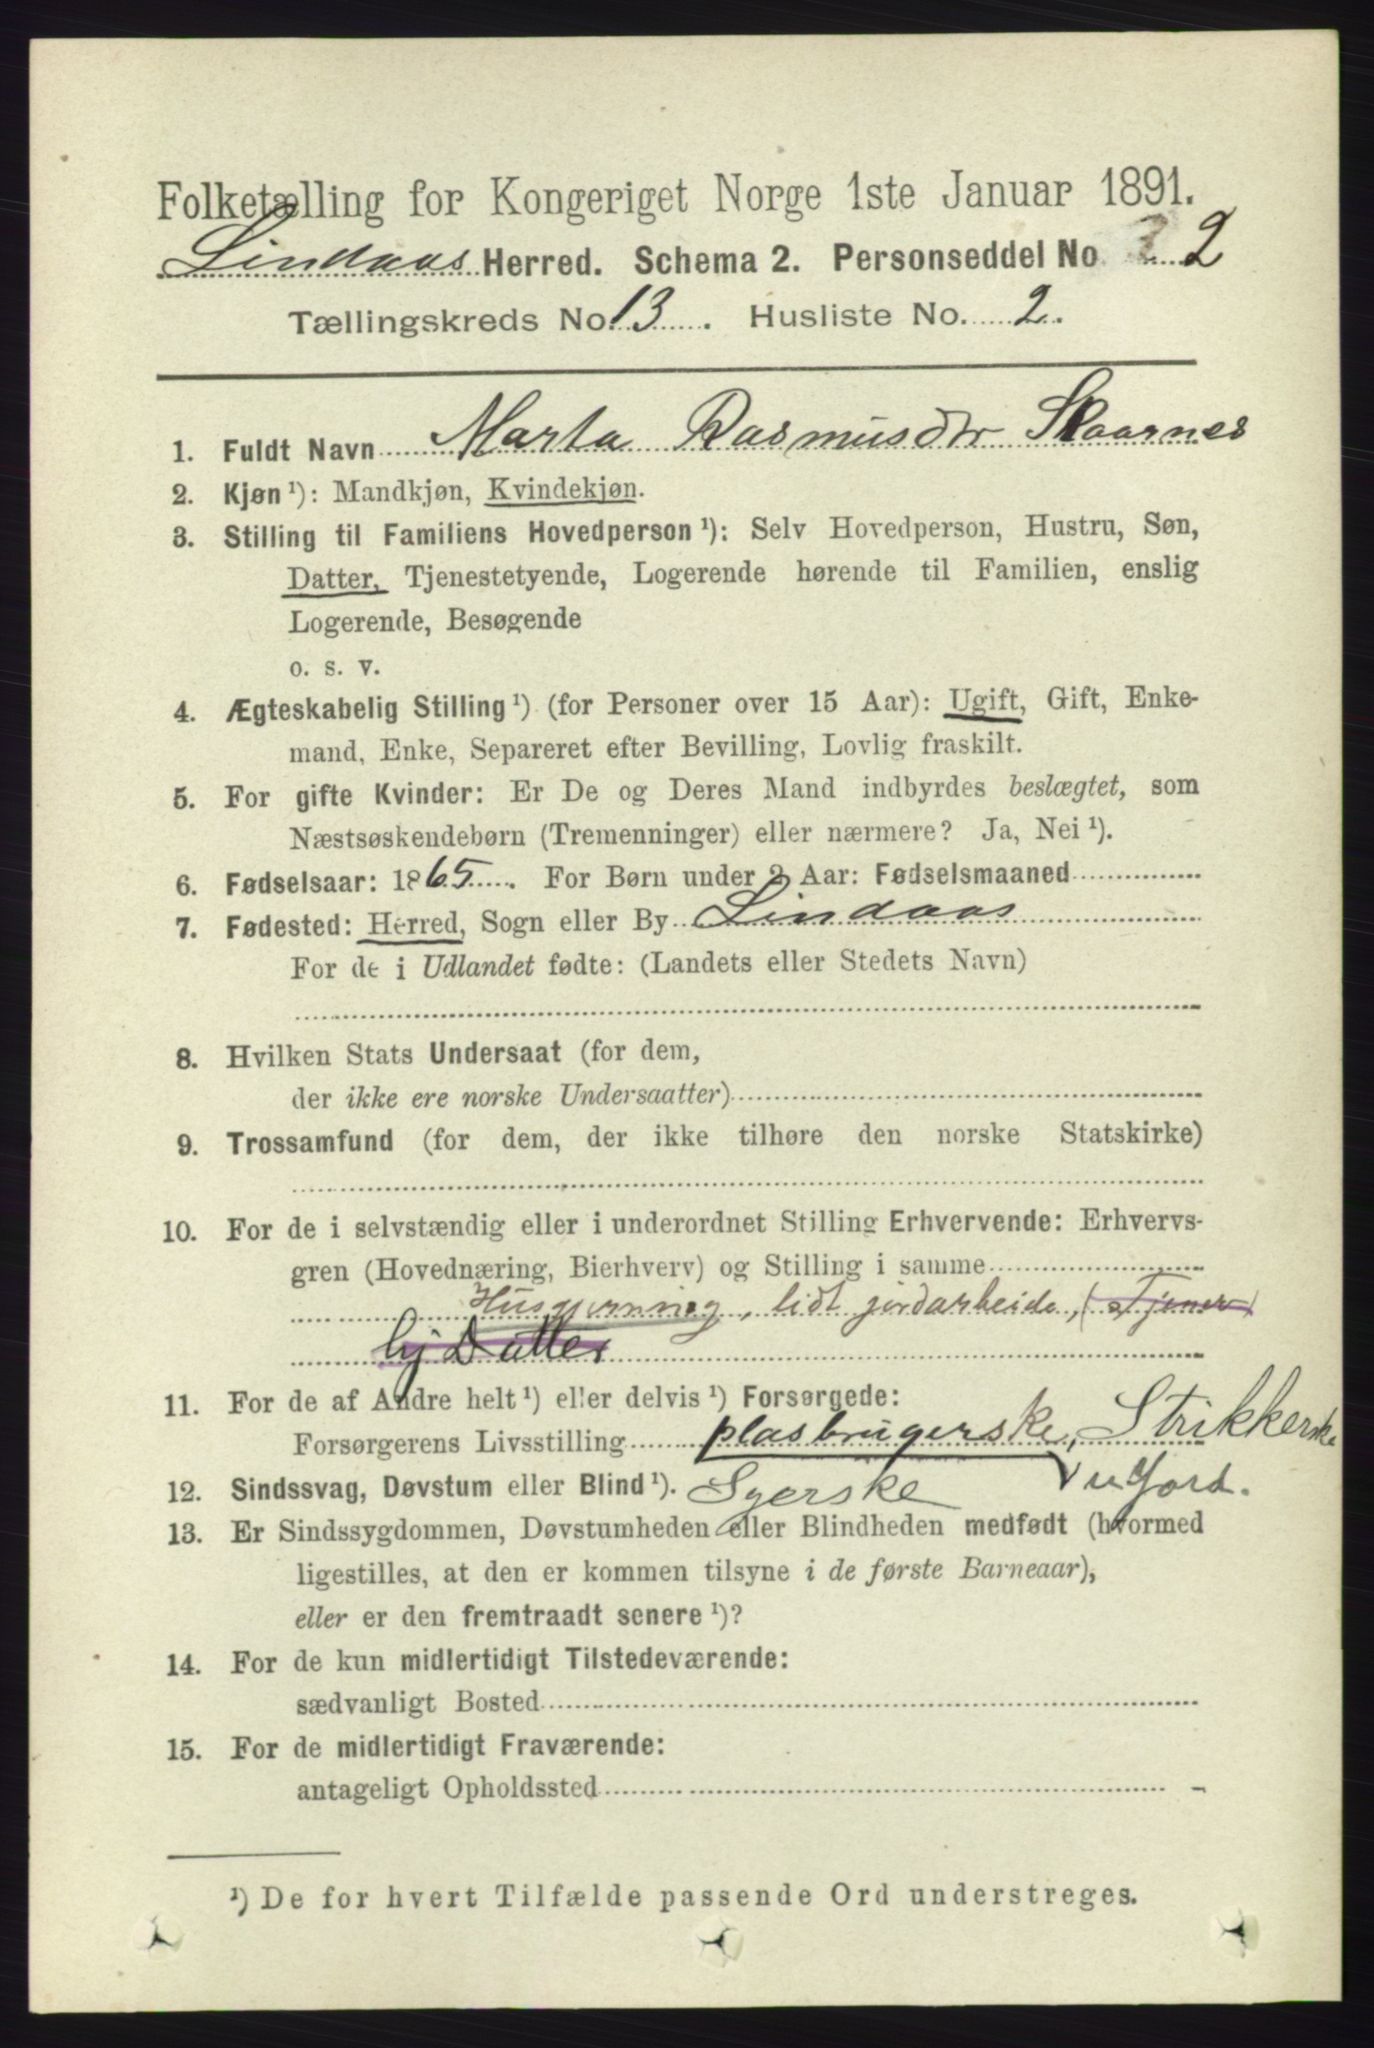 Folketælling for Kongeriget Norge 1ste Januar 1891.
Lindaas Herred. Schema 2. Personseddel No 2
Tællingskreds No. 13. Husliste No. 2.
1. Fuldt Navn Marta Rasmusdtr Skaarnes
2. Kjøn ¹): Mandkjøn, Kvindekjøn.
3. Stilling til Familiens Hovedperson ¹): Selv Hovedperson, Hustru, Søn,
Datter, Tjenestetyende, Logerende hørende til Familien, enslig
Logerende, Besøgende
o. s. v.
4. Ægteskabelig Stilling ¹) (for Personer over 15 Aar): Ugift, Gift, Enke-
mand, Enke, Separeret efter Bevilling, Lovlig fraskilt.
5. For gifte Kvinder: Er De og Deres Mand indbyrdes beslægtet, som
Næstsøskendebørn (Tremenninger) eller nærmere? Ja, Nei ¹).
6. Fødselsaar: 1865. For Børn under 2 Aar: Fødselsmaaned
7. Fødested: Herred, Sogn eller By Lindaas
For de i Udlandet fødte: (Landets eller Stedets Navn)
8. Hvilken Stats Undersaat (for dem,
der ikke ere norske Undersaatter)
9. Trossamfund (for dem, der ikke tilhøre den norske Statskirke)
10. For de i selvstændig eller i underordnet Stilling Erhvervende: Erhvervs-
gren (Hovednæring, Bierhverv) og Stilling i samme
Husgjerning, lidt jordarbeide, (Tjener
Datter
11. For de af Andre helt ¹) eller delvis ¹) Forsørgede:
Forsørgerens Livsstilling plasbrugerske, Strikkerske
12. Sindssvag, Døvstum eller Blind ¹). Syerske u Jord.
13. Er Sindssygdommen, Døvstumheden eller Blindheden medfødt (hvormed
ligestilles, at den er kommen tilsyne i de første Barneaar),
eller er den fremtraadt senere ¹)?
14. For de kun midlertidigt Tilstedeværende:
sædvanligt Bosted
15. For de midlertidigt Fraværende:
antageligt Opholdssted
¹) De for hvert Tilfælde passende Ord understreges.